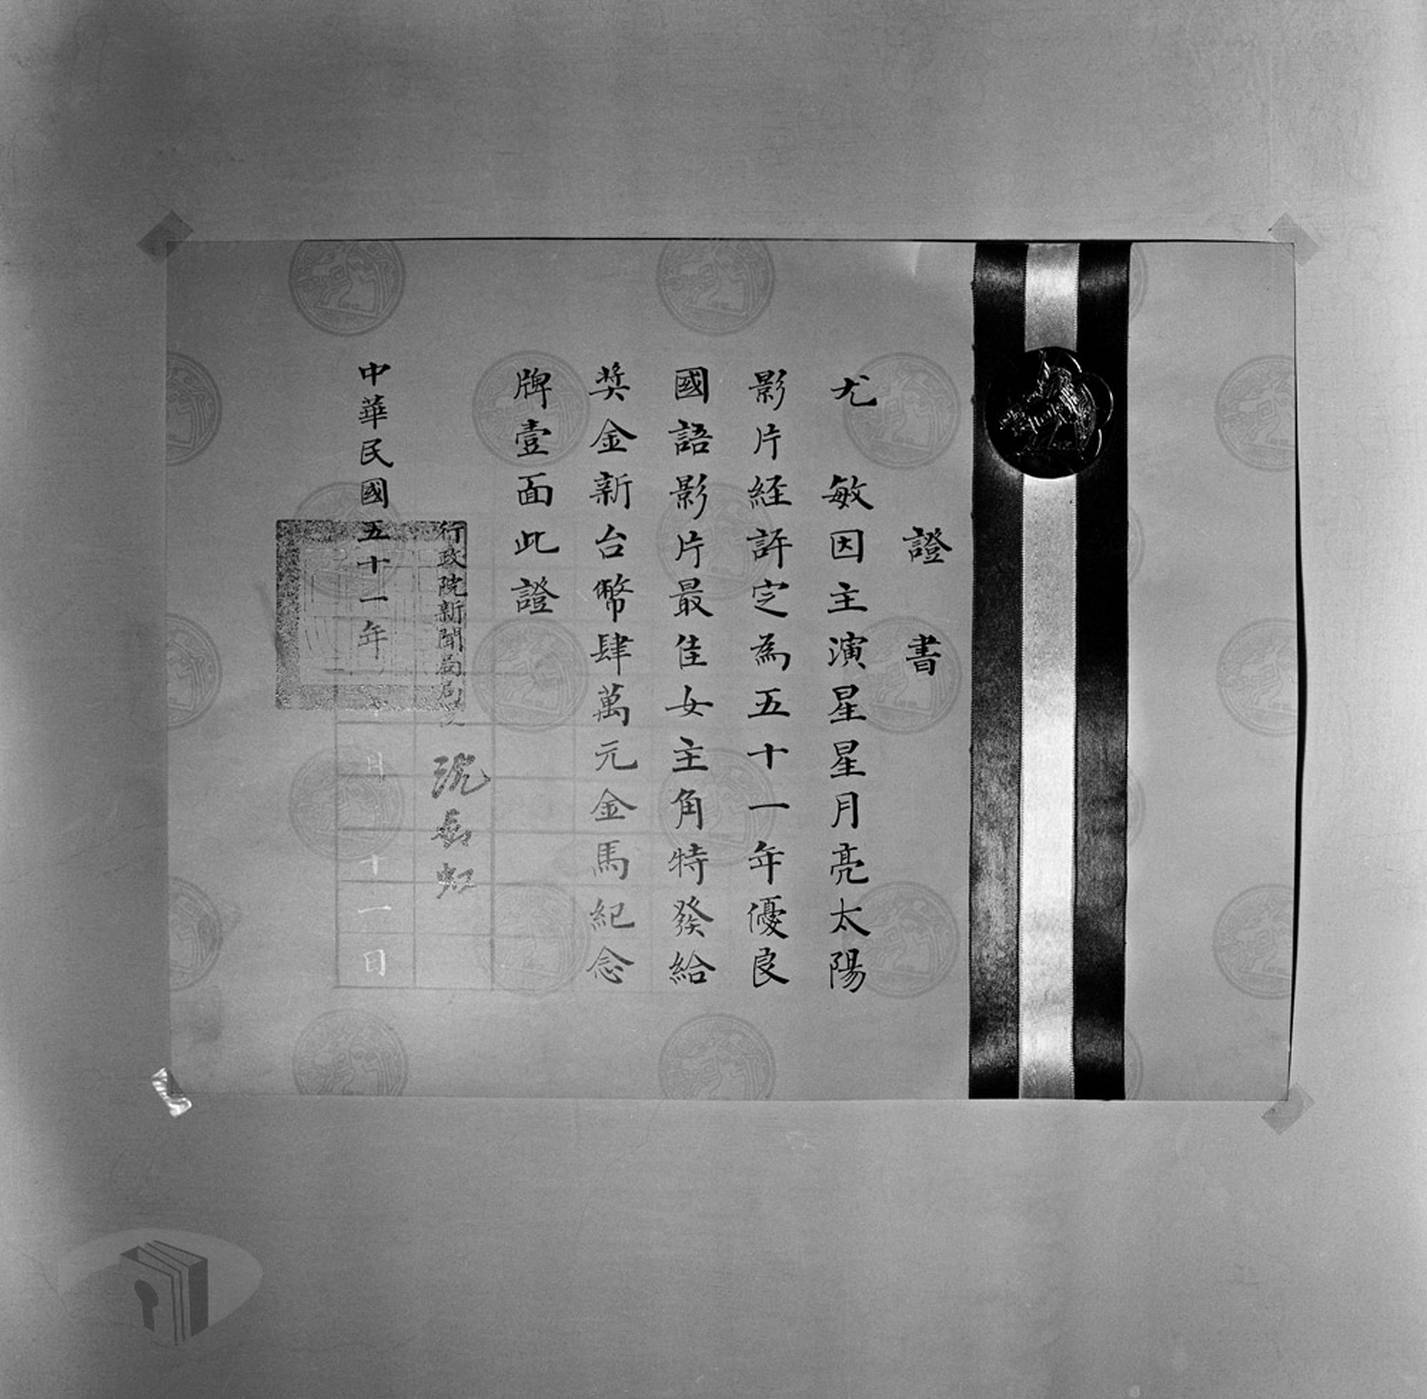 證書
尤敏因主演星星月亮太陽
影片経評定為五十一年優良
國語影片最佳女主角特發給
奬金新台幣肆萬元金馬紀念
牌壹面此證
行政院新聞局局長
沈劍虹
中華民國五十一年 月 十一日